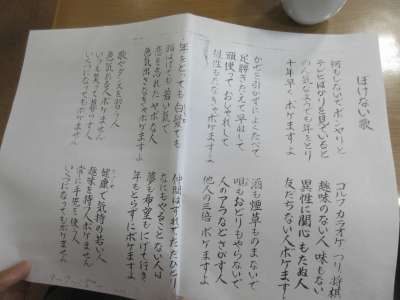 ぼけない歌
何もしないで ボンヤリと
テレビばかりを見ていると
のん気なようでも年をとり
十年早く ボケますよ
かぜを引かずによくたべて
足腰きたえて 早ねして
頭使って おしゃれして
年をとっても 白髪でも
頭はげても 若い気で
恋を忘れた ヤボな人
色気出さなきゃボケますよ
歌やダンスを習う人
色気のある人ボケません
いくつになってもボケません
ゴルフ カラオケ つり 将棋
趣味のない人 味もない
異性に関心もたぬ人
友だちない人ボケます
酒も煙草ものまないで
唄もおどりもやらないで
人のアラなどさがす人
他人の三倍 ボケますよ
仲間はずれでただひとり
なにもやることない人は
夢も希望もにげて行き
年もとらずにボケますよ
健康で気持の若い人
趣味を持つ人ボケません
常に手先を使う人
いくつになってもボケません